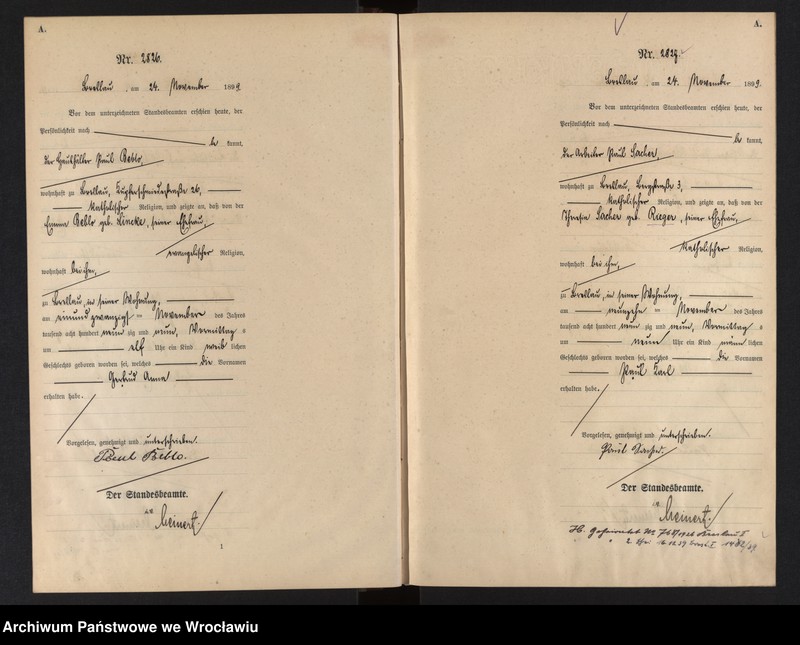 A.
Nr. 2826.
Breslau, am 24. November 1899
Vor dem unterzeichneten Standesbeamten erschien heute, der
Persönlichkeit nach
be kannt,
der Haushälter Paul Beblo,
wohnhaft zu Breslau, Kupferschmiedestraße 26,
katholischer Religion, und zeigte an, daß von der
Emma Beblo geb. Lincke, seiner Ehefrau,
evangelischer Religion,
wohnhaft bei ihm,
zu Breslau, in seiner Wohnung,
am einundzwanzigsten November des Jahres
tausend acht hundert neunzig und neun, Vormittags
um elf Uhr ein Kind weiblichen
Geschlechts geboren worden sei, welches die Vornamen
Gertrud Anna
erhalten habe.
Vorgelesen, genehmigt und unterschrieben.
Paul Beblo.
Der Standesbeamte.
Meinert
1
A.
Nr. 2827.
Breslau, am 24. November 1899.
Vor dem unterzeichneten Standesbeamten erschien heute, der
Persönlichkeit nach
be kannt,
der Arbeiter Paul Sacher,
wohnhaft zu Breslau, Bergstraße 3,
katholischer Religion, und zeigte an, daß von der
Theresia Sacher geb. Rieger, seiner Ehefrau,
katholischer Religion,
wohnhaft bei ihm,
zu Breslau, in seiner Wohnung,
am neunzehnten November des Jahres
tausend acht hundert neunzig und neun, Vormittags
um neun Uhr ein Kind männlichen
Geschlechts geboren worden sei, welches die Vornamen
Paul Karl
erhalten habe.
Vorgelesen, genehmigt und unterschrieben.
Paul Sacher.
Der Standesbeamte.
Meinert.
Geheiratet Nr. 1926 Breslau II
2.
Archiwum Państwowe we Wrocławiu